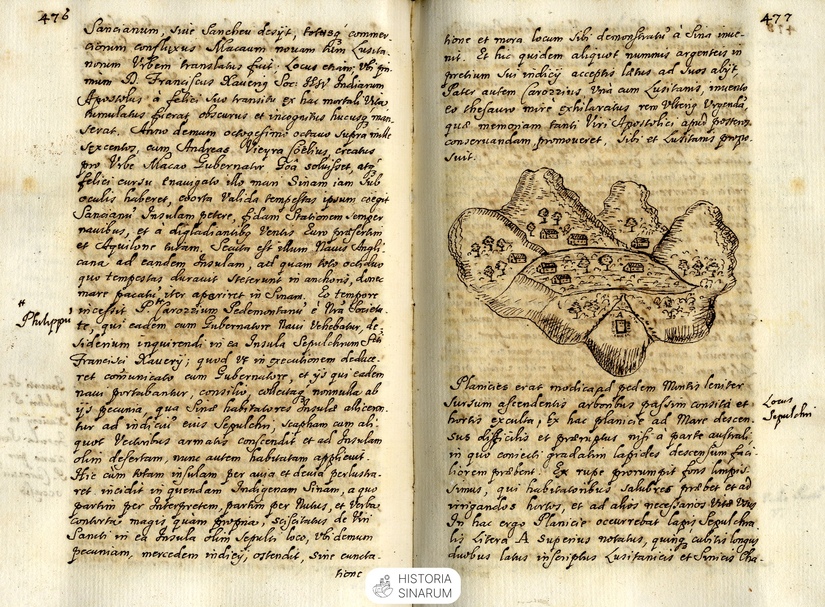 476
Sancianum, sive Sancheu desijt, totusq́ commer-
ciorum confluxus Macaum novam tum Lusita-
norum Urbem translatus fuit. Locus etiam ubi pri-
mum D. Franciscus Xaverij Soc: IESV Indiarum
Apostolus à felici suo transitu ex hac mortali Vita
tumulatus fuerat obscurus et incognitus hucusq́ man-
serat. Anno demum octogesimo octavo supra mille
sexcentos, cum Andreas Vieyra Coelius, creatus
pro Urbe Macao Gubernatur Goâ solvisset, atq́
felici cursu enavigato illo mari Sinam iam sub
oculis haberet, exorta valida tempestas ipsum coegit
Sanciani Insulam petere, fidam Stationem semper
navibus, et à digladiantibus Ventis Euro præsertim
et Aquilone tutam. Secuta est illum Navis Angli-
cana ad eandem Insulam, ad quam toto octiduo
quo tempestas duravit steterunt in anchoris, donec
mare pacatu iter aperiret in Sinam. Eo tempore
# Philippū
incessit P. # Carozzium Pedemontanū è Nrâ Societa-
te, qui eadem cum Gubernatore Navi vehebatur, de-
siderium inquirendi in ea Insula Sepulchrum Sti
Francisci Xaverij; quod ut in executionem deduce-
ret comunicato cum Gubernatore, et ijs qui eadem
navi portabantur, consilio, collectaq́ nonnulla ab
ijs pecunia, qua Sinæ habitatores Insulæ alliceren-
tur ad indiciū eius Sepulchri, Scapham cum ali-
quot Vectoribus armatis conscendit et ad Insulam
olim desertam, nunc autem habitatam applicuit.
Hic cum totam insulam per avia et devia perlustra-
ret incidit in quendam Indigenam Sinam, a quo
partim per Interpretem, partim per Nutus, et Verba
contorta magis quam propria, sciscitatus de Viri
Sancti in ea Insula olim Sepulti loco, ubi demum
pecuniam, mercedem indicij, ostendit, sine cuncta-
tione
477
tione et mora locum sibi demonstratū à Sina inve-
nit. Et hic quidem aliquot nummis argenteis in
pretium sui indicij acceptis lætus ad suos abijt,
Pater autem Carozzius unà cum Lusitanis, invento
eo thesauro mirè exhilaratus rem ulterius urgenda,
quæ memoriam tanti Viri Apostolici apud posteros
conservandam, promoveret, sibi et Lusitanis propo-
suit.
A
Planicies erat modica ad pedem Montis leniter
sursum ascendentis arboribus passim consita et
Locus
Sepulchri
hortis exculta; Ex hac planicie ad Mare descen-
sus difficilis et præruptus nisi à parte australi
in quo coniecti gradatim lapides descensum faci-
liorem præbent. Ex rupe prorumpit fons limpis-
simus, qui habitatoribus salubres præbet et ad
irrigandos hortos, et ad alios necessarios vitæ usus
In hac ergo Planicie occurrebat lapis Sepulchra-
lis litera A superius notatus, quinq́ cubitis longus
duobus latus inscriptus Lusitanicis et Sinicis Cha-
HISTORIA
SINARUM